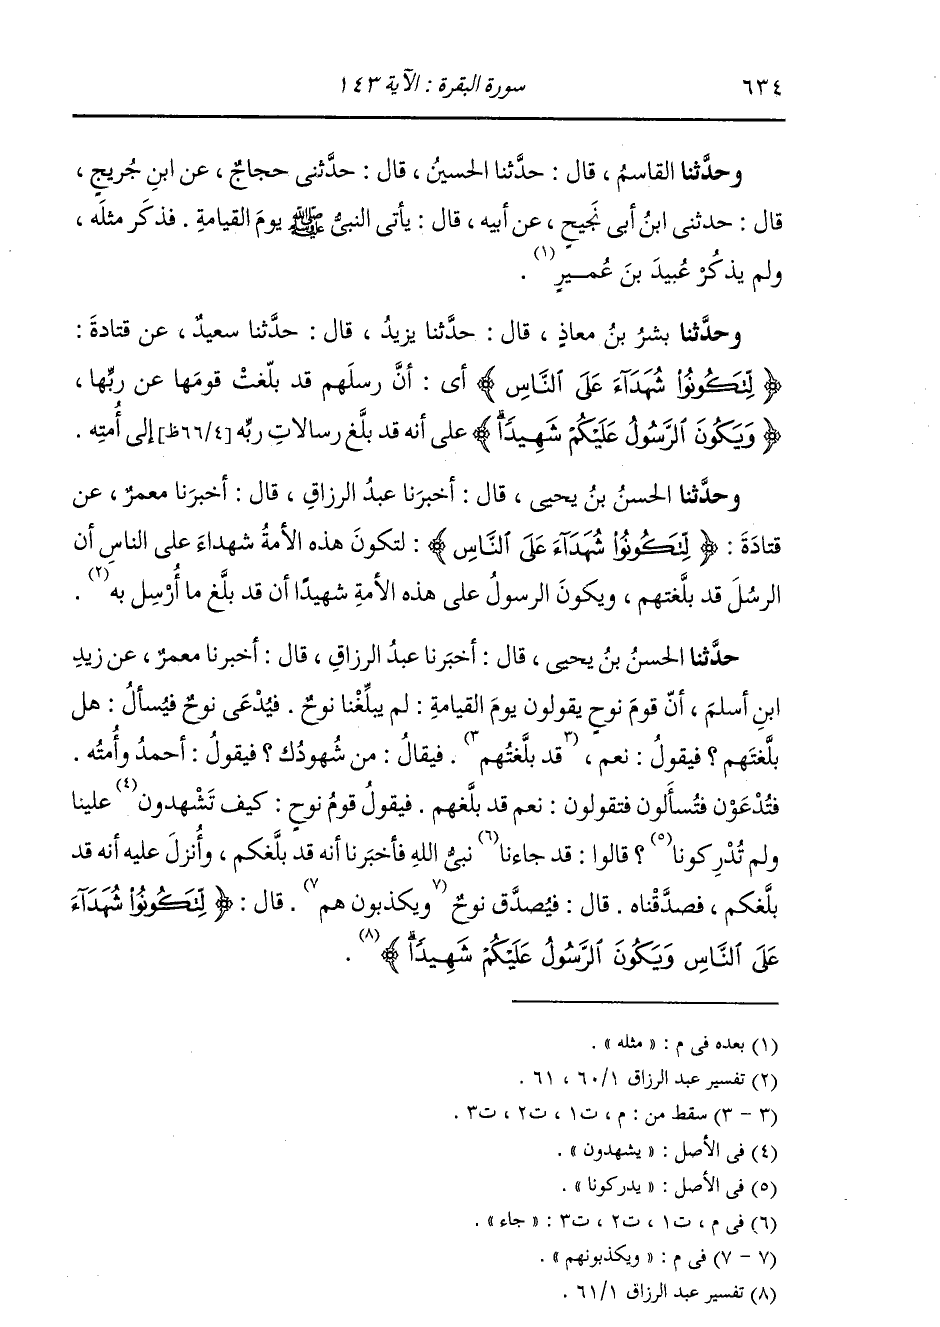 ٦٣٤ سورة البقرة : الآية ١٤٣
وحدَّثنا القاسمُ ، قال : حدَّثنا الحسينُ ، قال : حدَّثنى حجاجٌ ، عن ابنِ جُريجٍ ،
قال : حدثنى ابنُ أبى نَجيحٍ ، عن أبيه ، قال : يأتى النبىُّ ﷺ يومَ القيامةِ . فذكَر مثلَه ،
ولم يذكُرْ عُبيدَ بنَ عُميرٍ(١) .
وحدَّثنا بشرُ بنُ معاذٍ ، قال : حدَّثنا يزيدُ ، قال : حدَّثنا سعيدٌ ، عن قتادةَ :
﴿ لِّتَكُونُوا۟ شُهَدَآءَ عَلَى ٱلنَّاسِ ﴾ أى : أنَّ رسلَهم قد بلَّغتْ قومَها عن ربِّها ،
﴿ وَيَكُونَ ٱلرَّسُولُ عَلَيْكُمْ شَهِيدًا ۗ ﴾ على أنه قد بلَّغ رسالاتِ ربِّه [٦٦/٤ظ] إلى أُمتِه .
وحدَّثنا الحسنُ بنُ يحيى ، قال : أخبرَنا عبدُ الرزاقِ ، قال : أخبرَنا معمرٌ ، عن
قتادَةَ : ﴿ لِّتَكُونُوا۟ شُهَدَآءَ عَلَى ٱلنَّاسِ ﴾ : لتكونَ هذه الأمةُ شهداءَ على الناسِ أن
الرسُلَ قد بلَّغتهم ، ويكونَ الرسولُ على هذه الأمةِ شهيدًا أن قد بلَّغ ما أُرْسِل به(٢) .
حدَّثنا الحسنُ بنُ يحيى ، قال : أخبَرنا عبدُ الرزاقِ ، قال : أخبرنا معمرٌ ، عن زيدِ
ابنِ أسلمَ ، أنّ قومَ نوحٍ يقولون يومَ القيامةِ : لم يبلِّغْنا نوحٌ . فيُدْعَى نوحٌ فيُسألُ : هل
بلَّغتَهم ؟ فيقولُ : نعم ، (٣قد بلَّغتُهم٣) . فيقالُ : من شُهودُك ؟ فيقولُ : أحمدُ وأُمتُه .
فتُدْعَوْن فتُسأَلون فتقولون : نعم قد بلَّغهم . فيقولُ قومُ نوحٍ : كيف تَشْهدون(٤) علينا
ولم تُدْرِكونا(٥) ؟ قالوا : قد جاءنا(٦) نبىُّ اللهِ فأخبَرنا أنه قد بلَّغكم ، وأُنزلَ عليه أنه قد
بلَّغكم ، فصدَّقْناه . قال : فيُصدَّق نوحٌ (٧ويكذبون هم٧) . قال : ﴿ لِّتَكُونُوا۟ شُهَدَآءَ
عَلَى ٱلنَّاسِ وَيَكُونَ ٱلرَّسُولُ عَلَيْكُمْ شَهِيدًا ۗ ﴾(٨) .
(١) بعده فى م : « مثله » .
(٢) تفسير عبد الرزاق ٦٠/١ ، ٦١ .
(٣ - ٣) سقط من : م ، ت١ ، ت٢ ، ت٣ .
(٤) فى الأصل : « يشهدون » .
(٥) فى الأصل : « يدركونا » .
(٦) فى م ، ت١ ، ت٢ ، ت٣ : « جاء » .
(٧ - ٧) فى م : « ويكذبونهم » .
(٨) تفسير عبد الرزاق ٦١/١ .